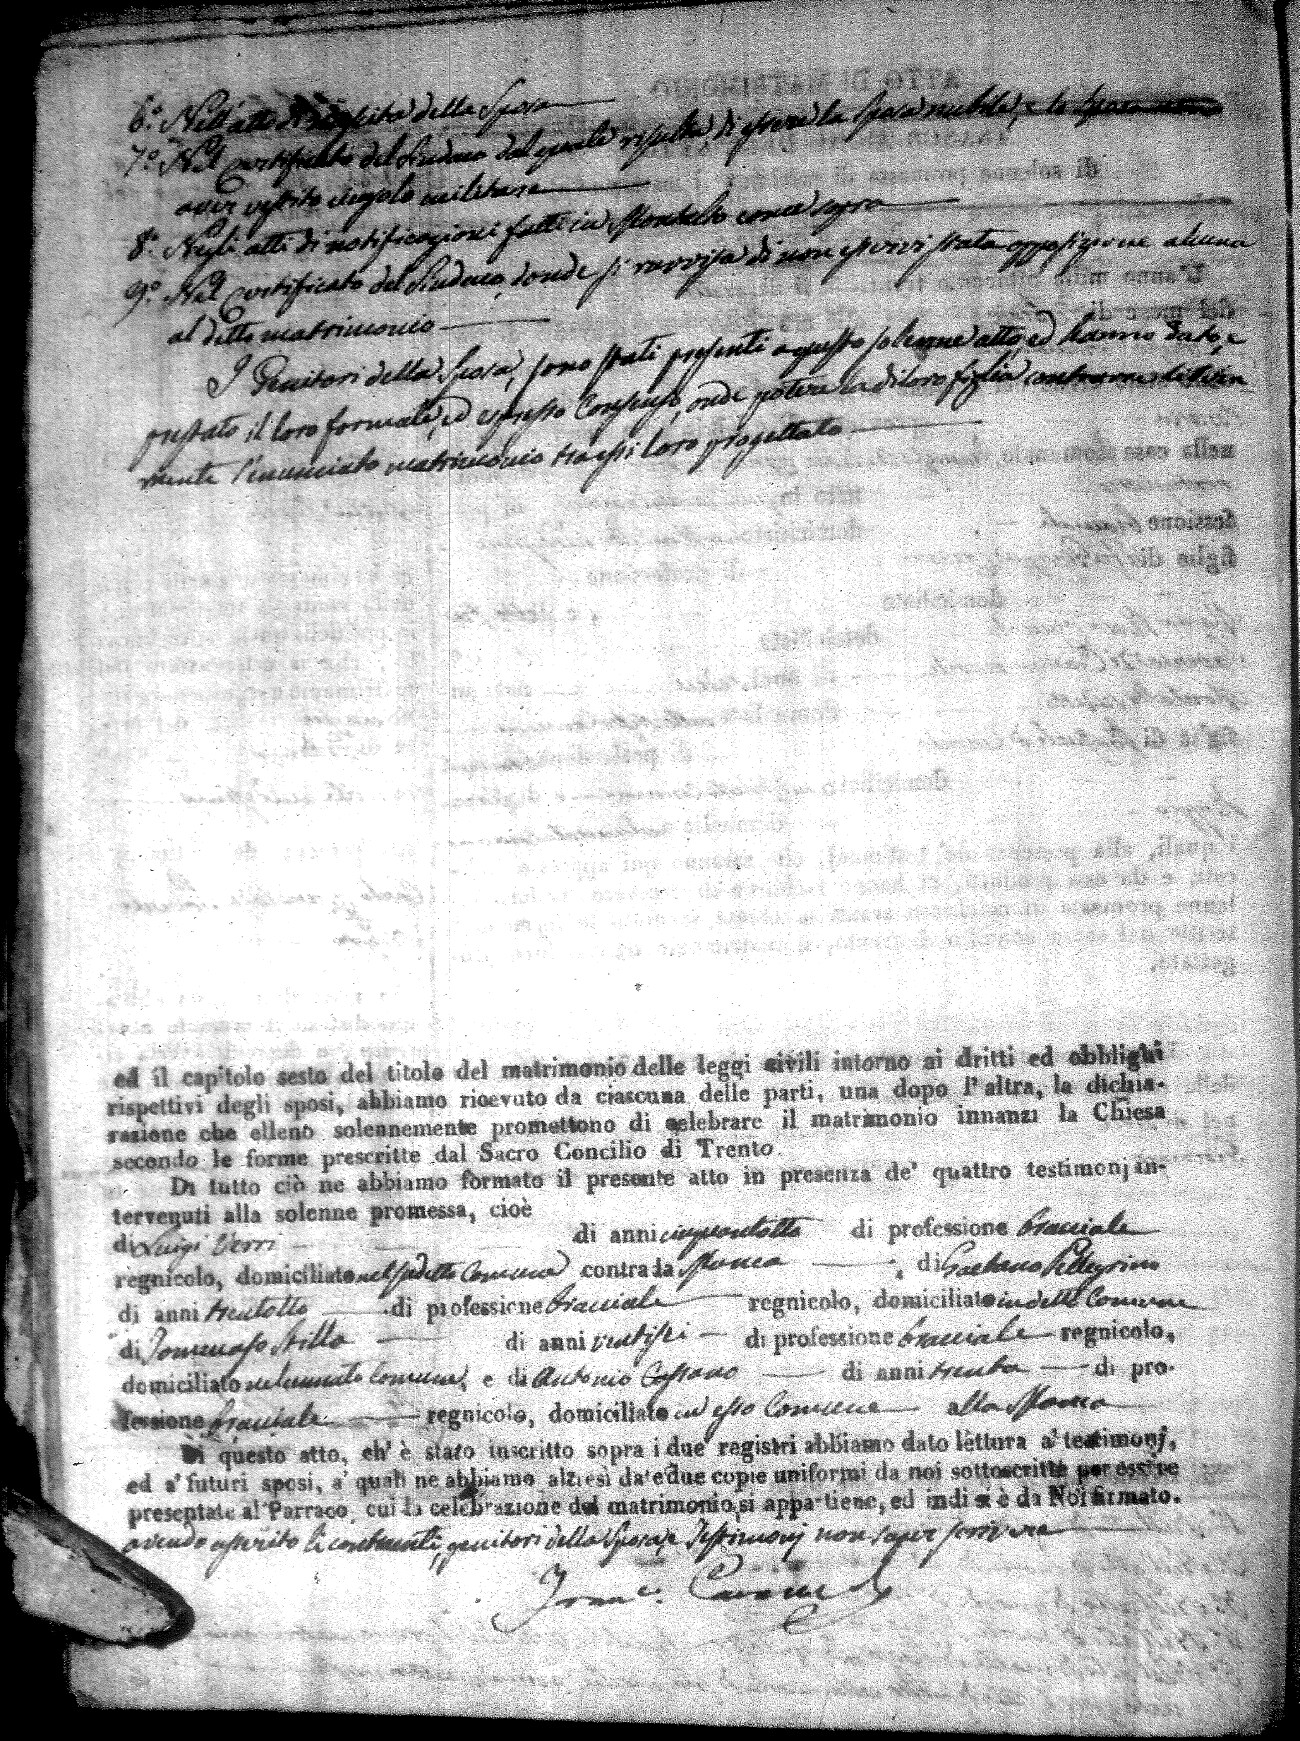 6.° Nell'atto di nascita della Sposa
7.° Nel Certificato del Sindaco dal quale risulta, di essere la Sposa nubile, e lo Sposo
aver vestito cingolo militare
8.° Negli atti di notificazioni fatte in Montalto come sopra
9.° Nel Certificato del Sindaco, donde si ravvisa di non esservi stata opposizione alcuna
al ditto matrimonio
I Genitori della Sposa, sono stati presenti a questo solenne atto, ed hanno dato, e
prestato il loro formale, ed espresso Consenso, onde potere la di loro figlia contrarre
mente l'enunciato matrimonio tra essi loro progettato
ed il capitolo sesto del titolo del matrimonio delle leggi civili intorno ai dritti ed obblighi
rispettivi degli sposi, abbiamo ricevuto da ciascuna delle parti, una dopo l'altra, la dichia-
razione che elleno solennemente promettono di celebrare il matrimonio innanzi la Chiesa
secondo le forme prescritte dal Sacro Concilio di Trento.
Di tutto ciò ne abbiamo formato il presente atto in presenza de' quattro testimonj in-
tervenuti alla solenne promessa, cioè
di Luigi Verri di anni cinquantotto di professione bracciale
regnicolo, domiciliato nel suddetto Comune contrada di Gaetano Pellegrino
di anni trentotto di professione bracciale regnicolo, domiciliato in detto Comune
di Tommaso Stillo di anni ventisei di professione bracciale regnicolo,
domiciliato nel Comune, e di Antonio Cassano di anni trenta di pro-
fessione bracciale regnicolo, domiciliato in esso Comune alla
Di questo atto, ch' è stato inscritto sopra i due registri abbiamo dato lettura a' testimonj,
ed a' futuri sposi, a' quali ne abbiamo altresì date due copie uniformi da noi sottoscritte per essere
presentate al Parroco, cui la celebrazione del matrimonio si appartiene, ed indi si è da Noi firmato.
avendo asserito li contraenti, genitori della Sposa, e Testimonj non saper scrivere